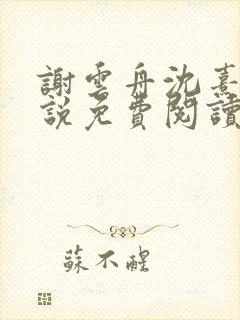 謝雲舟沈熹
說免費閱讀
蘇不醒